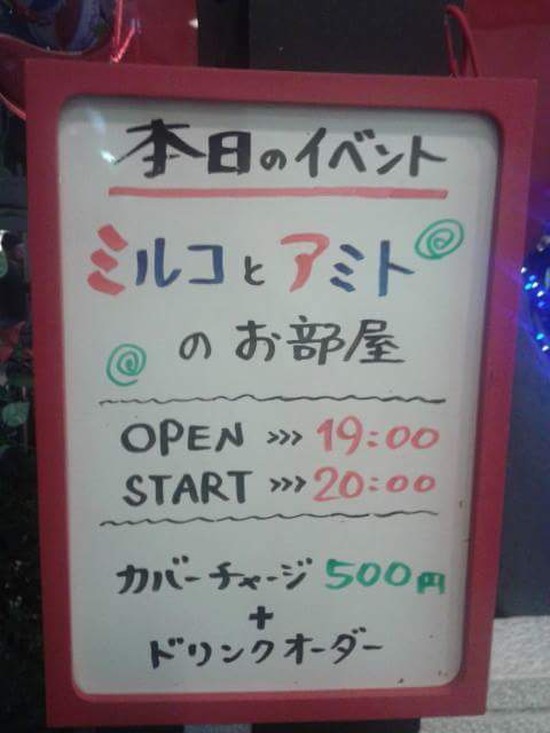 本日のイベント
ミルコとアミト
のお部屋
OPEN >>> 19:00
START >>> 20:00
カバーチャージ 500円
+
ドリンクオーダー